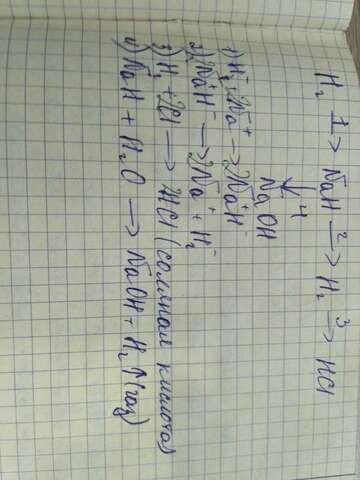 H₂ 1→ NaH 2→ H₂ 3→ HCl
↓4
NaOH
1) H₂ + 2Na⁺ → 2Na⁺H⁻
2) 2Na⁺H⁻ → 2Na⁺ + H₂⁻
3) H₂ + 2Cl → 2HCl (соляная кислота)
4) NaH + H₂O → NaOH + H₂↑(газ)